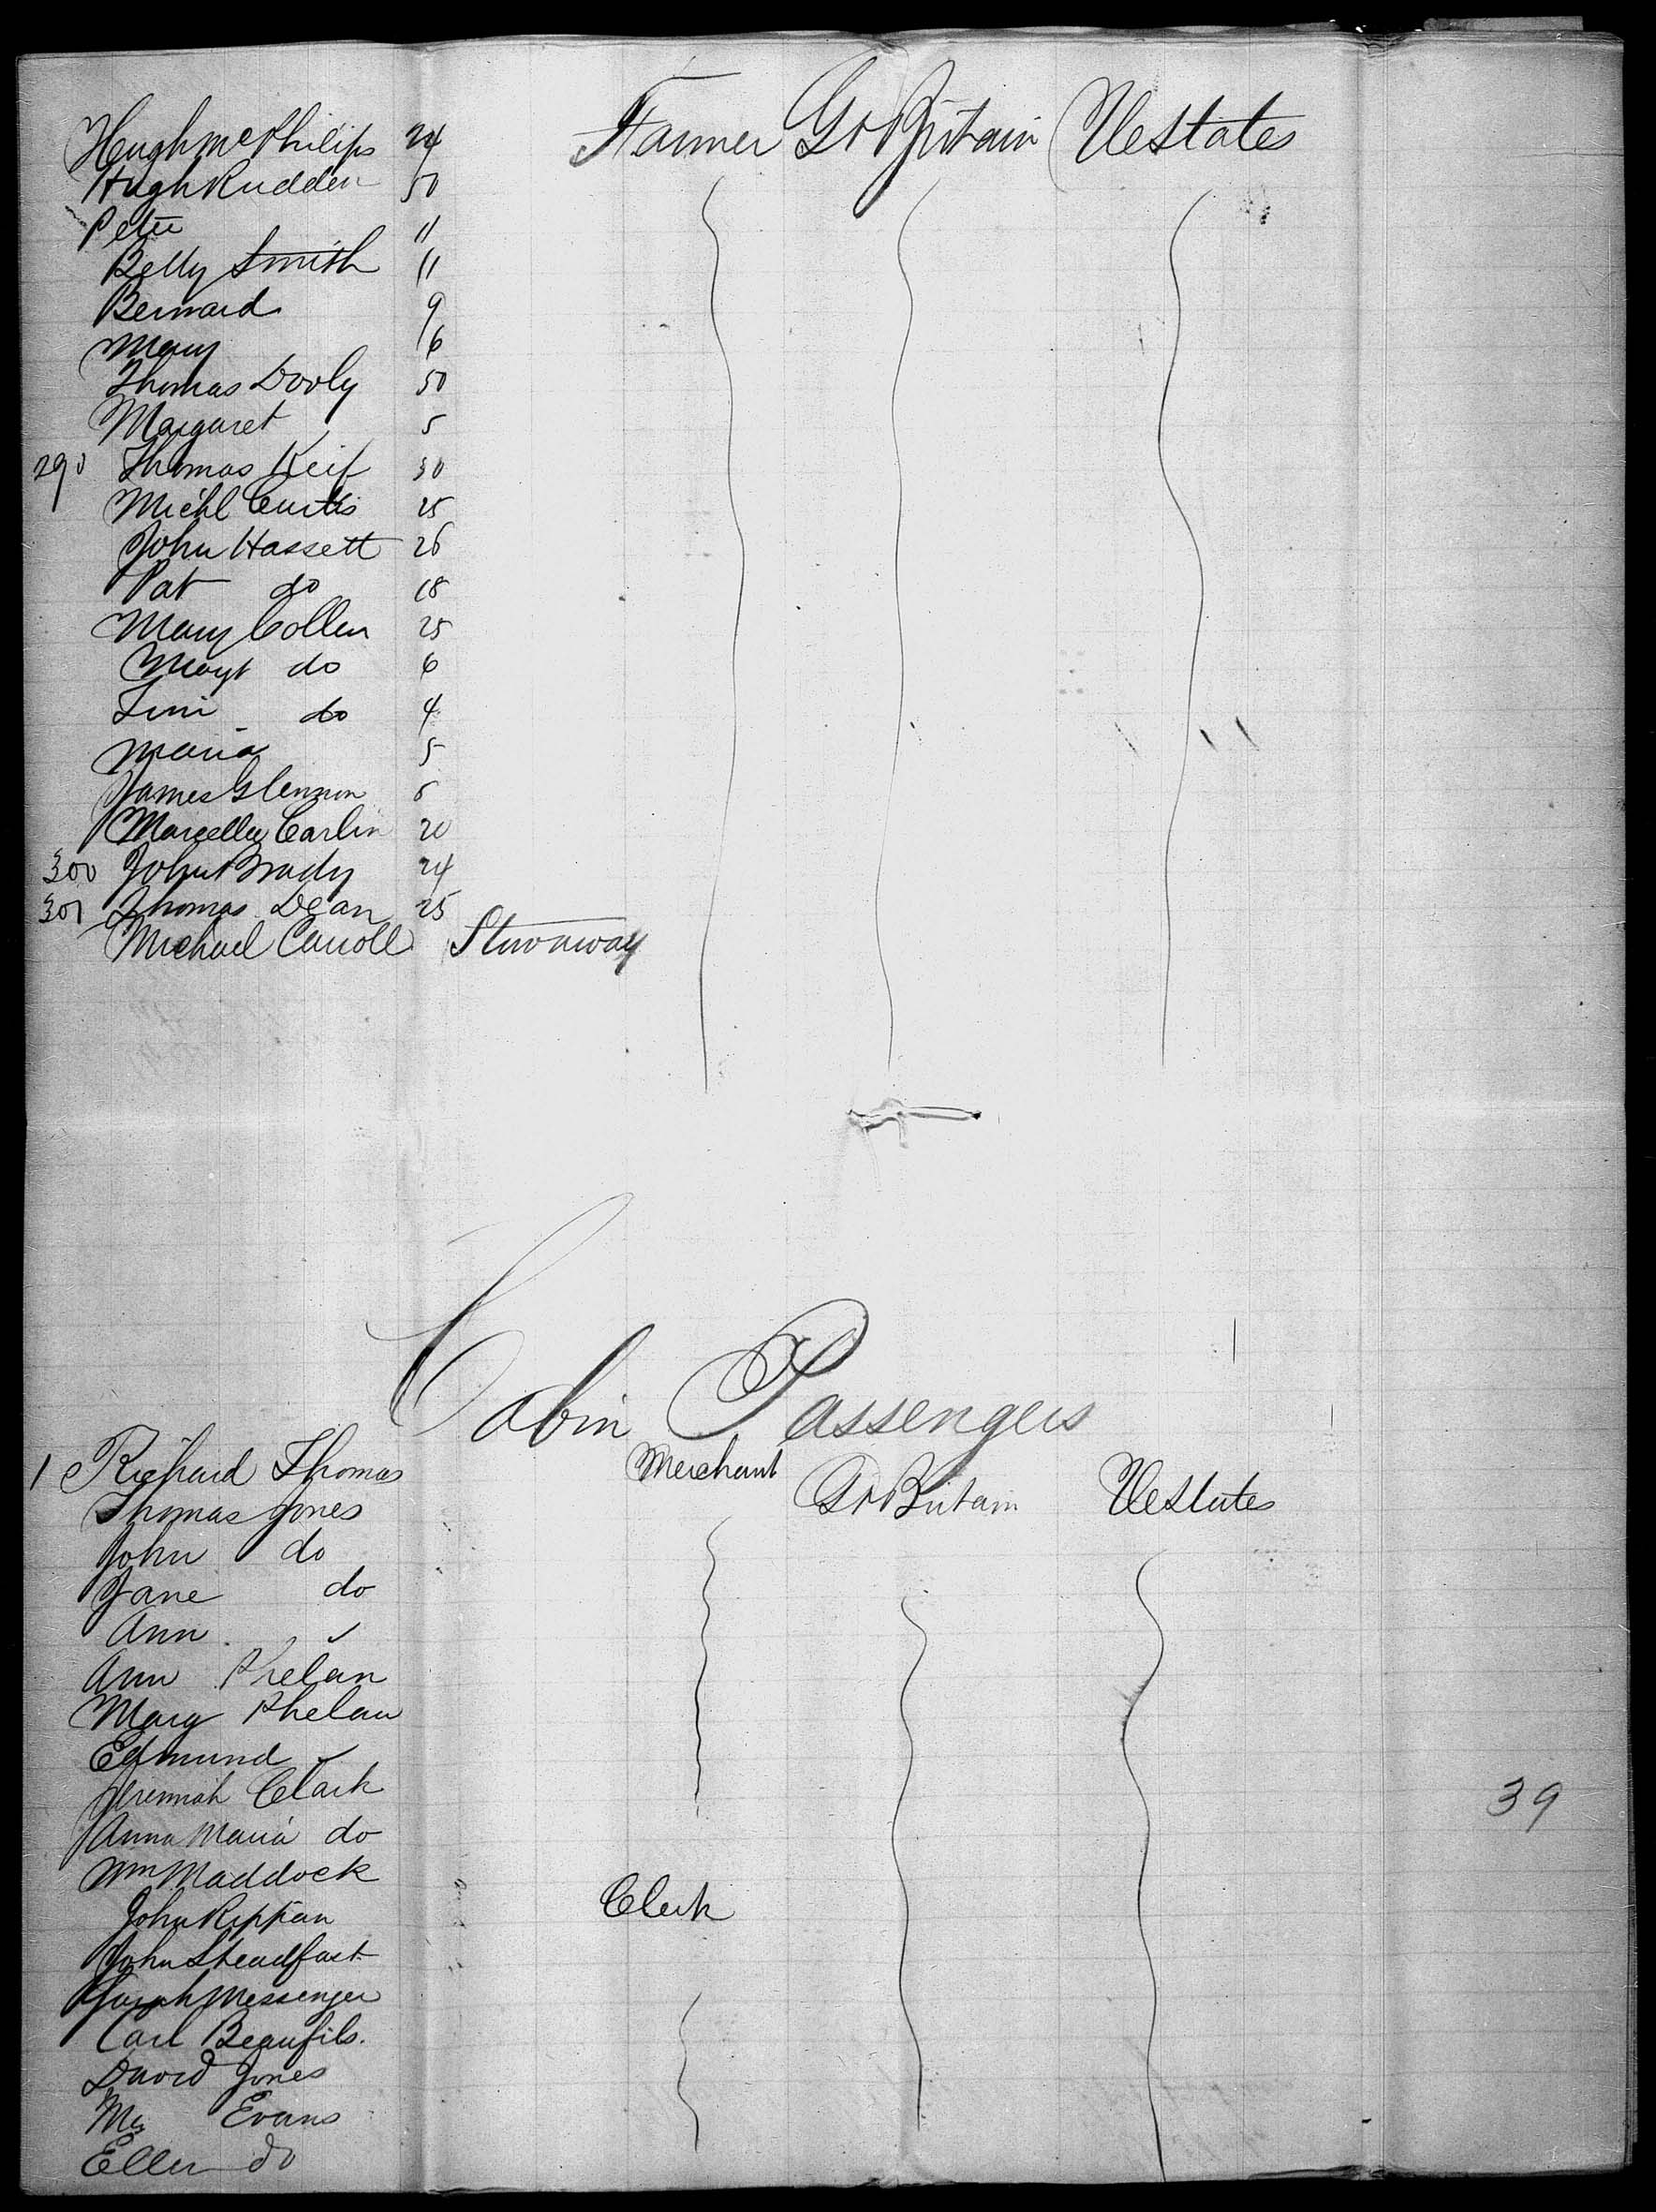 Hugh McPhilips 24 Farmer Gt Britain UeStates
Hugh Rudden 50
Peter 11
Betty Smith 11
Bernard 9
Mary 6
Thomas Dooly 50
Margaret 5
290 Thomas Keif 30
Michl Curtis 25
John Hassett 26
Pat do 18
Mary Collen 25
Margt do 6
do 4
Maria 5
James Glennon
Marcella Carlin 20
300 John Brady 24
301 Thomas Dean 25
Michael Carroll Stowaway
Cabin Passengers
1 Richard Thomas Merchant Gt Britain UeStates
Thomas Jones
John do
Jane do
Ann
Ann Phelan
Mary Phelan
Edmund
Jeremiah Clark
39
Anna Maria do
Wm Maddock
John Rippan Clerk
John Steadfast
Sarah Messenger
Carl Beaufils.
David Jones
Evans
Ellen do